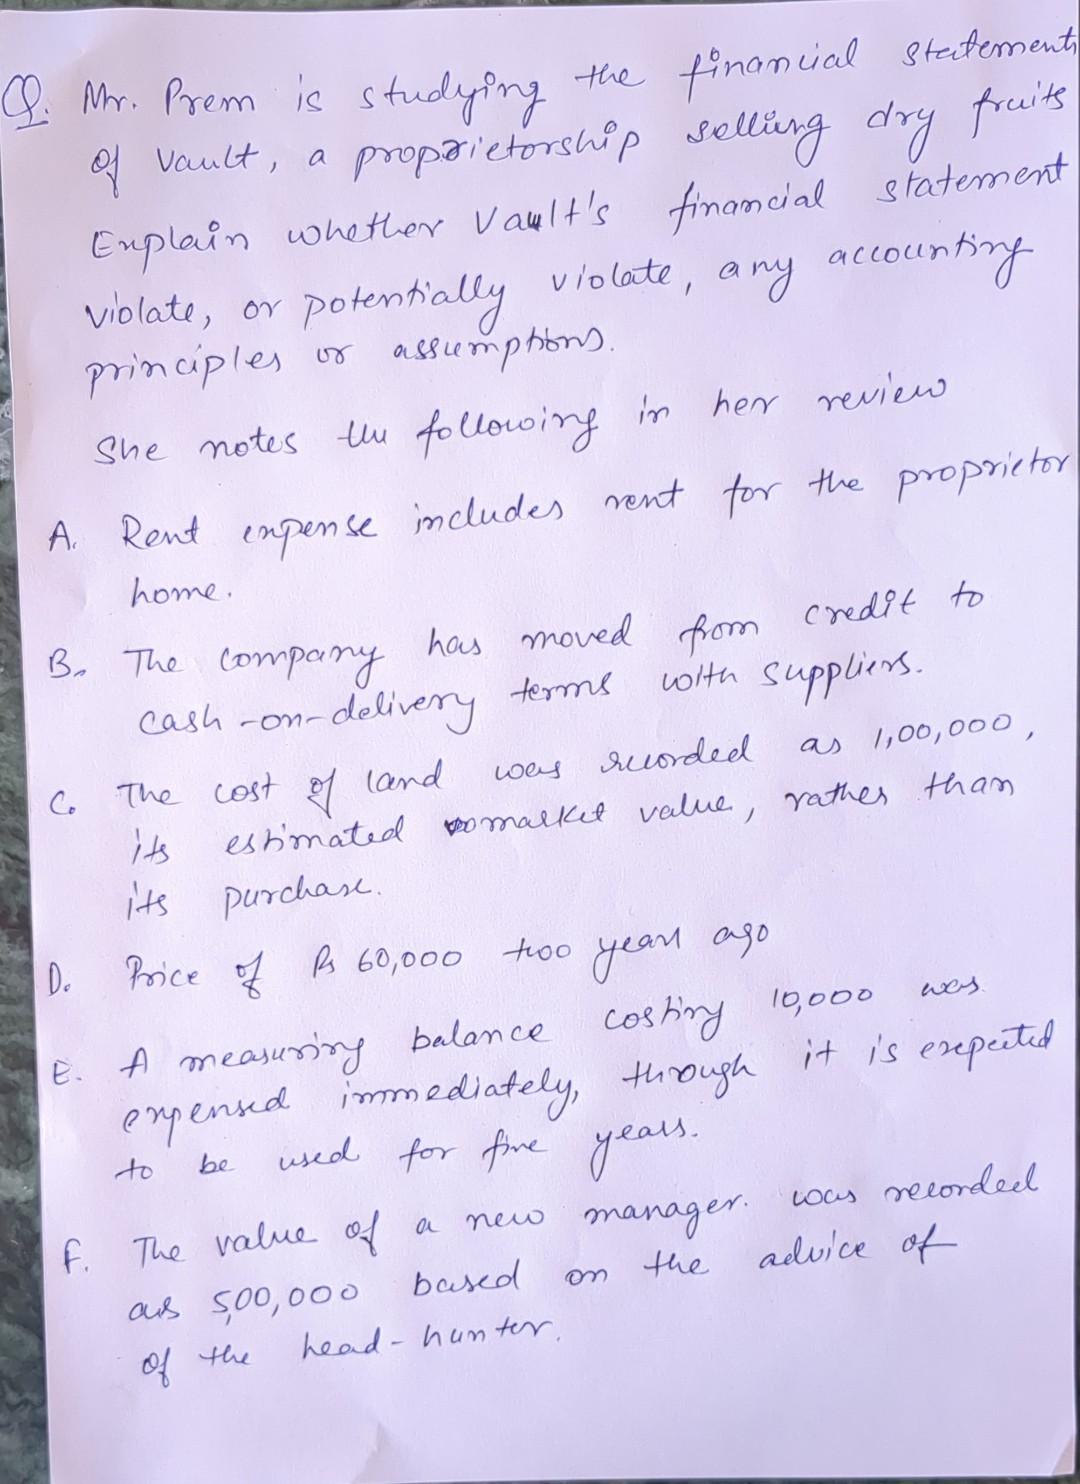 Q. Mr. Prem is studying the financial statements
of Vault, a proprietorship selling dry fruits
Explain whether Vault's financial statement
violate, or potentially violate, any accounting
principles or assumptions.
She notes the following in her review
A. Rent expense includes rent for the proprietor
home.
B. The company has moved from credit to
cash-on-delivery terms with suppliers.
C. The cost of land was recorded as 1,00,000,
its estimated market value, rather than
its purchase.
D. Price of Rs 60,000 two years ago
E. A measuring balance costing 10,000 was
expensed immediately, through it is expected
to be used for five years.
F. The value of a new manager. was recorded
as 5,00,000 based on the advice of
of the head-hunter.